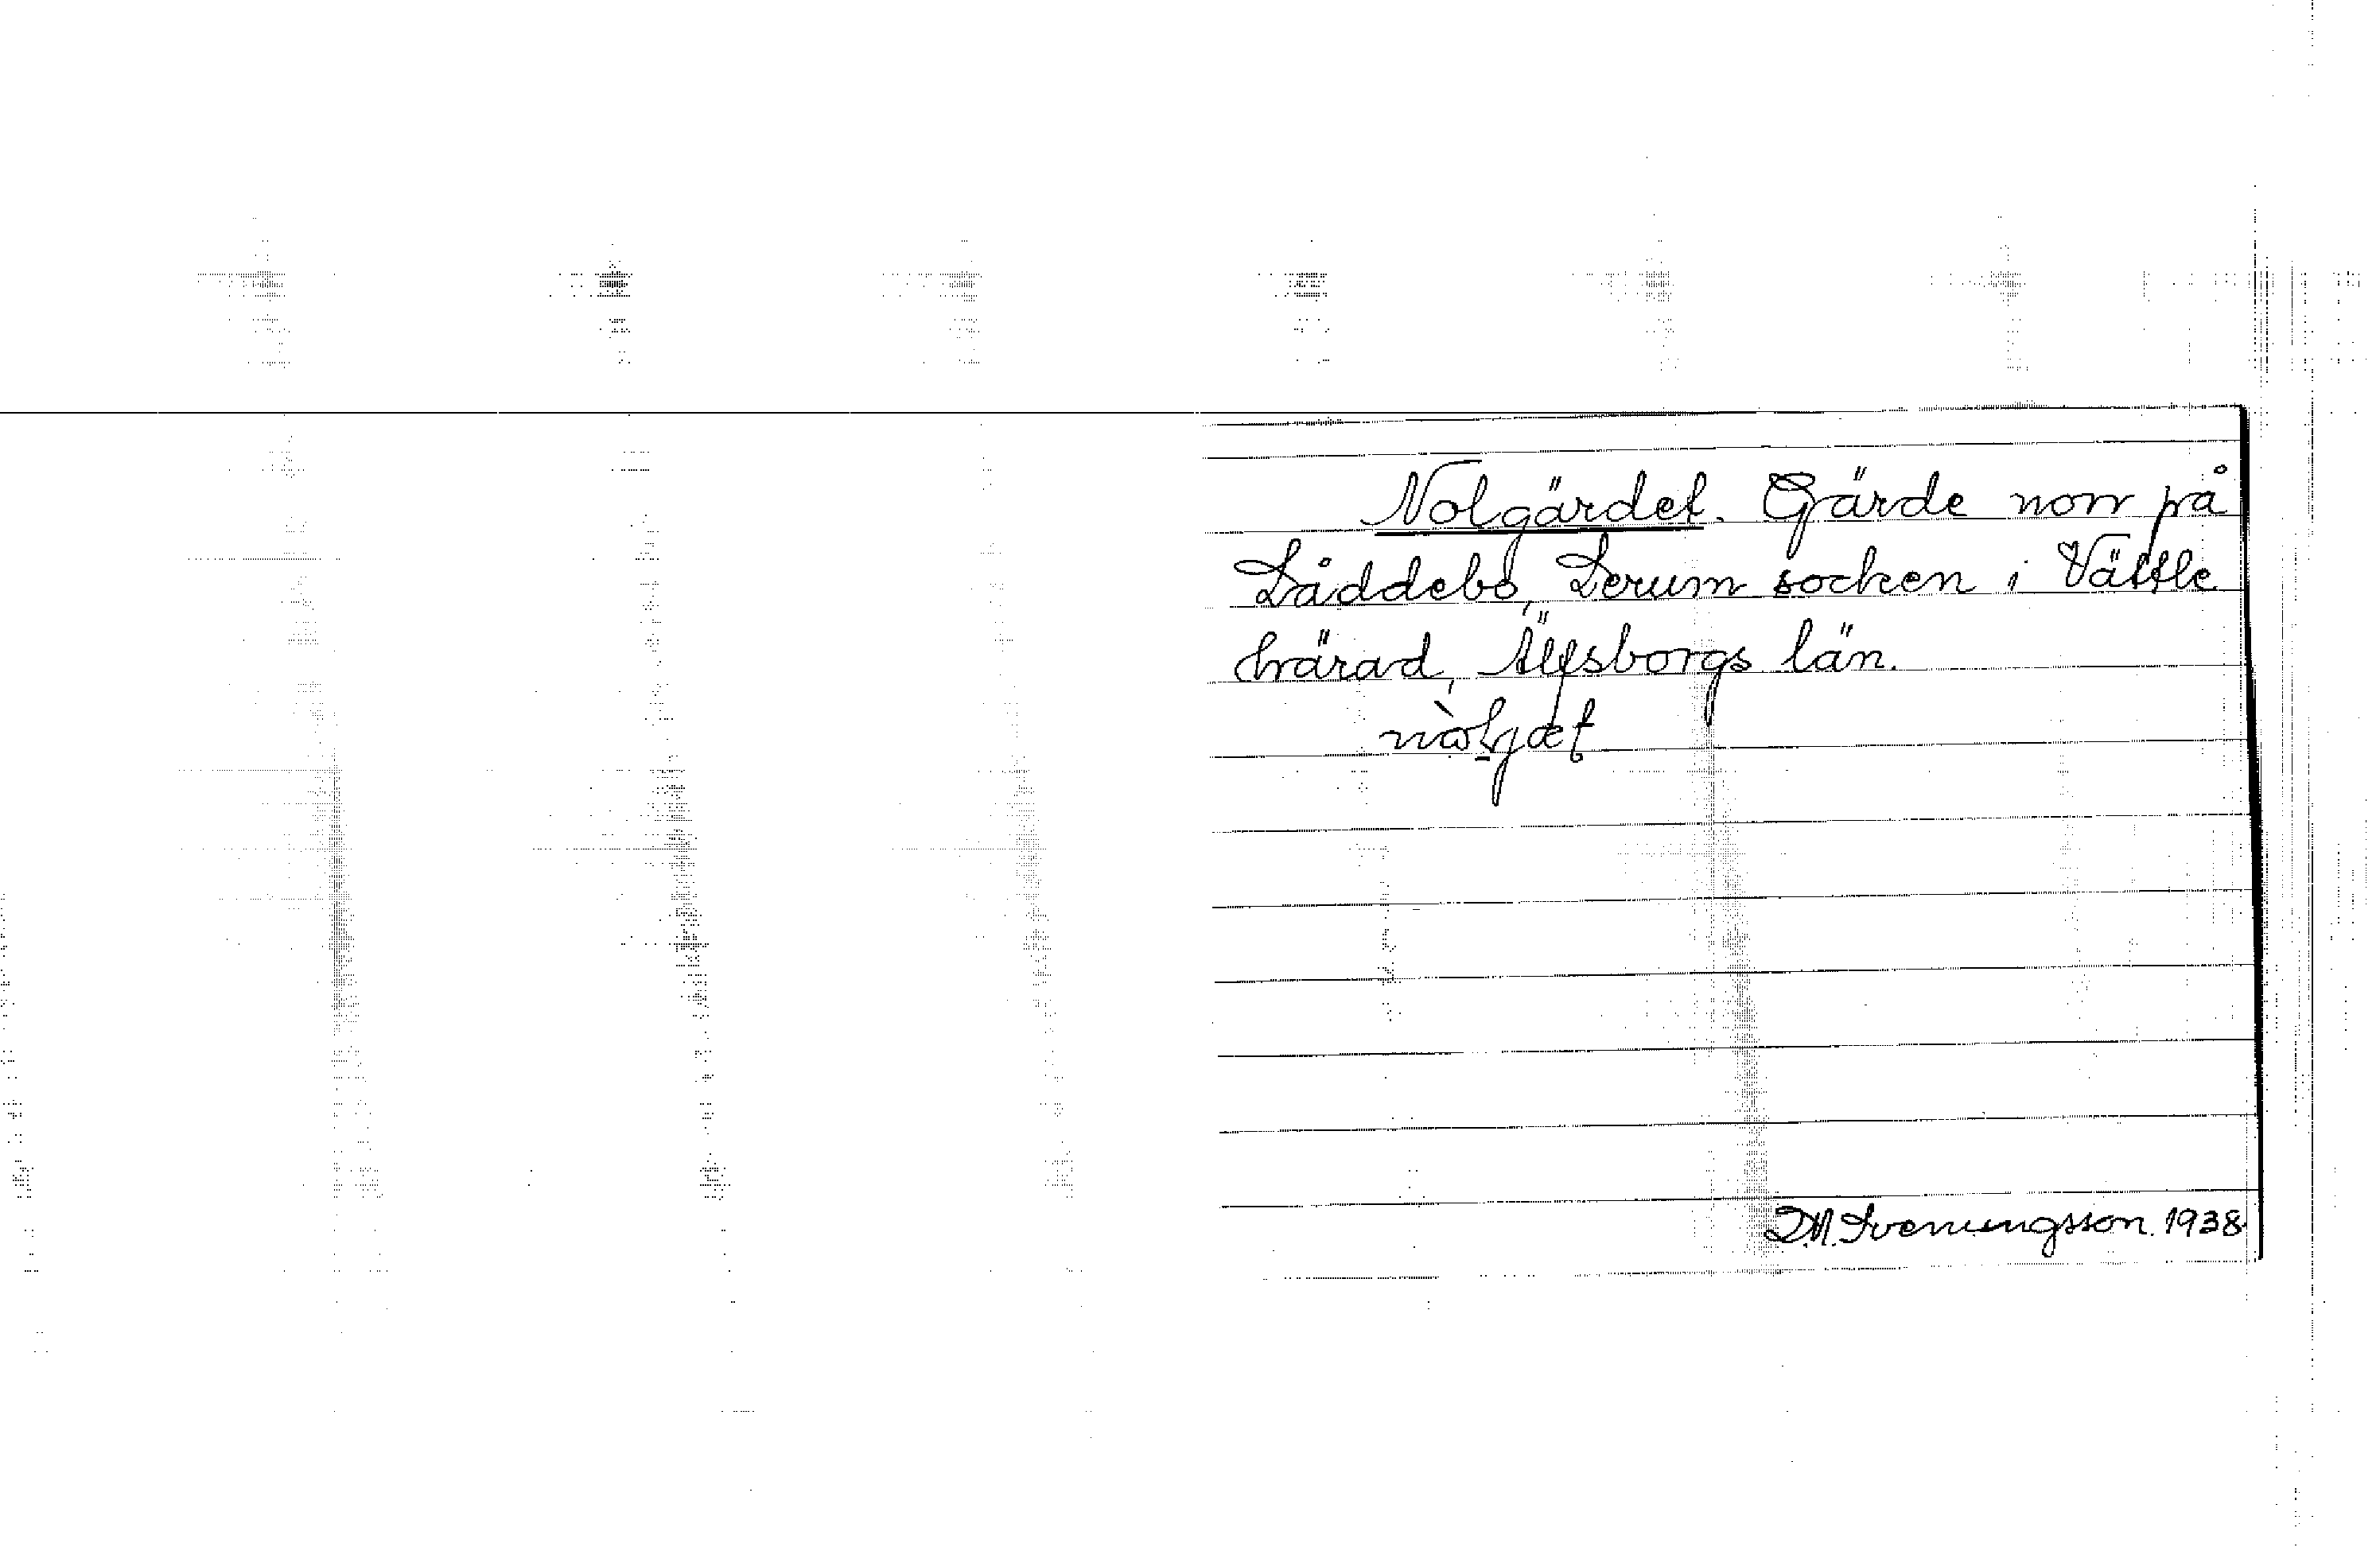 Nolgärdet. Gärde norr på
Låddebo, Lerum socken i Vättle
härad, Älfsborgs län.
D.M. Svenungsson. 1938